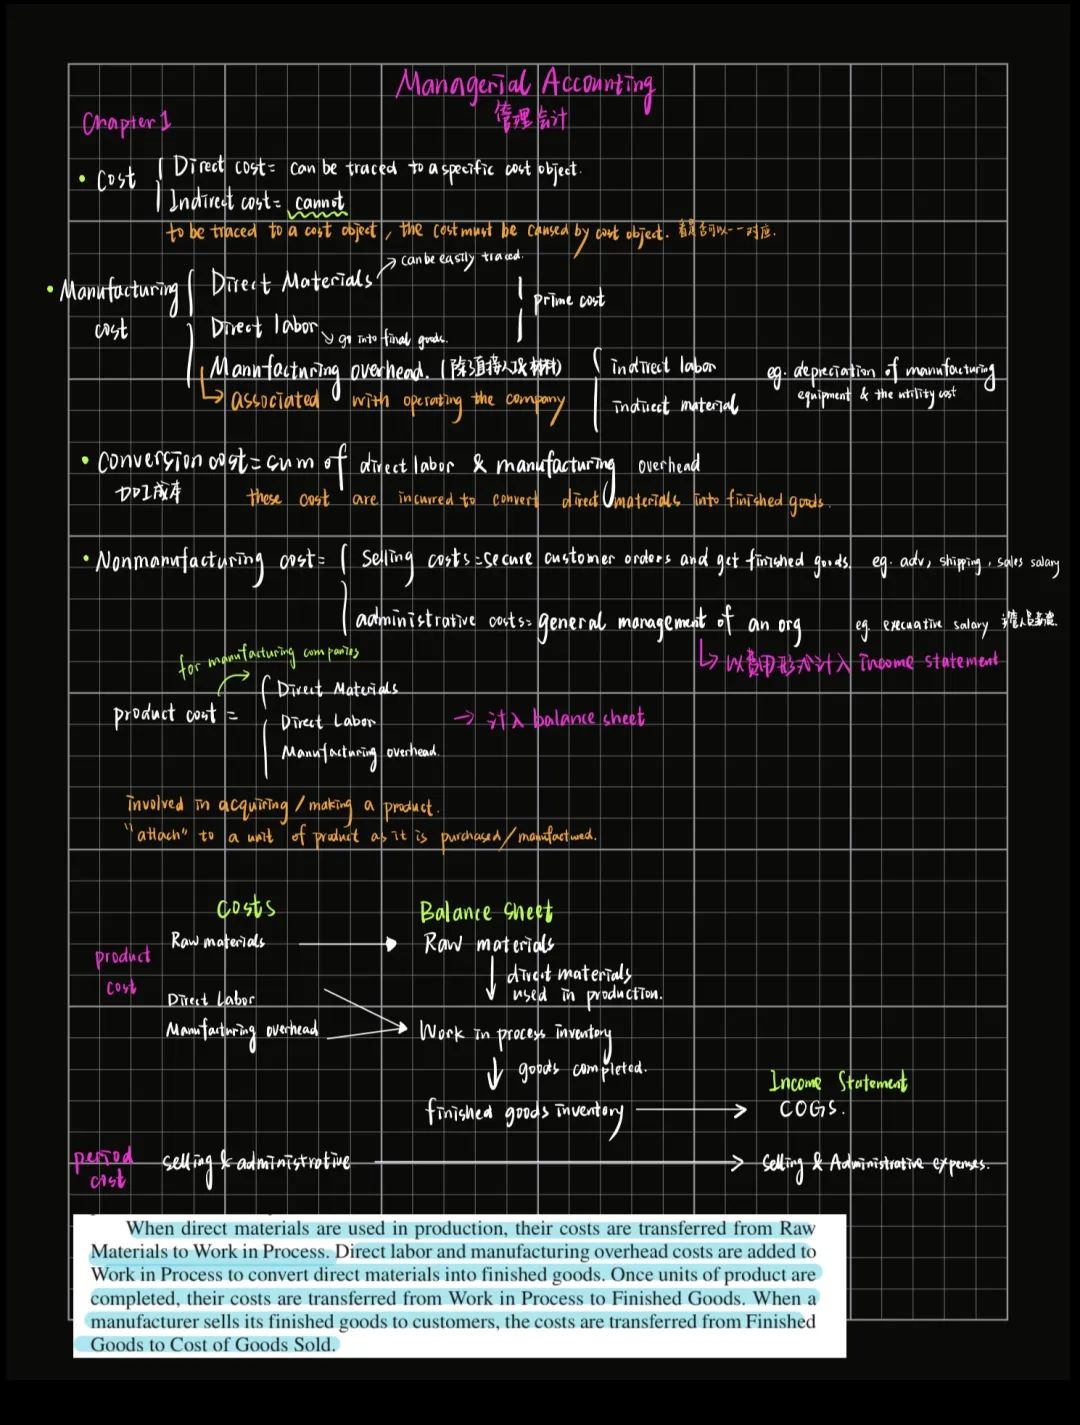 Managerial Accounting
管理会计
Chapter 1
• Cost
Direct cost = can be traced to a specific cost object.
Indirect cost = cannot
to be traced to a cost object, the cost must be caused by cost object. 看是否可以一一对应.
• Manufacturing cost
Direct Materials → can be easily traced.
Direct labor ↘ go into final goods.
prime cost
Manufacturing overhead. (除了直接人或材料)
indirect labor
indirect material
eg. depreciation of manufacturing
equipment & the utility cost
associated with operating the company
• Conversion cost = sum of direct labor & manufacturing overhead
加工成本
these cost are incurred to convert direct materials into finished goods.
• Nonmanufacturing cost =
selling costs = secure customer orders and get finished goods. eg. adv, shipping, sales salary
administrative costs = general management of an org eg. execuative salary
↳ 以费用形式计入 income statement
for manufacturing companies
product cost =
Direct Materials
Direct Labor
Manufacturing overhead.
→ 计入 balance sheet
involved in acquiring / making a product.
"attach" to a unit of product as it is purchased/manufactured.
Costs
Balance Sheet
product cost
Raw materials → Raw materials
↓ direct materials
used in production.
Direct Labor
Manufacturing overhead → Work in process inventory
↓ goods completed.
Income Statement
finished goods inventory → COGS.
period cost
selling & administrative → Selling & Administrative expenses.
When direct materials are used in production, their costs are transferred from Raw
Materials to Work in Process. Direct labor and manufacturing overhead costs are added to
Work in Process to convert direct materials into finished goods. Once units of product are
completed, their costs are transferred from Work in Process to Finished Goods. When a
manufacturer sells its finished goods to customers, the costs are transferred from Finished
Goods to Cost of Goods Sold.